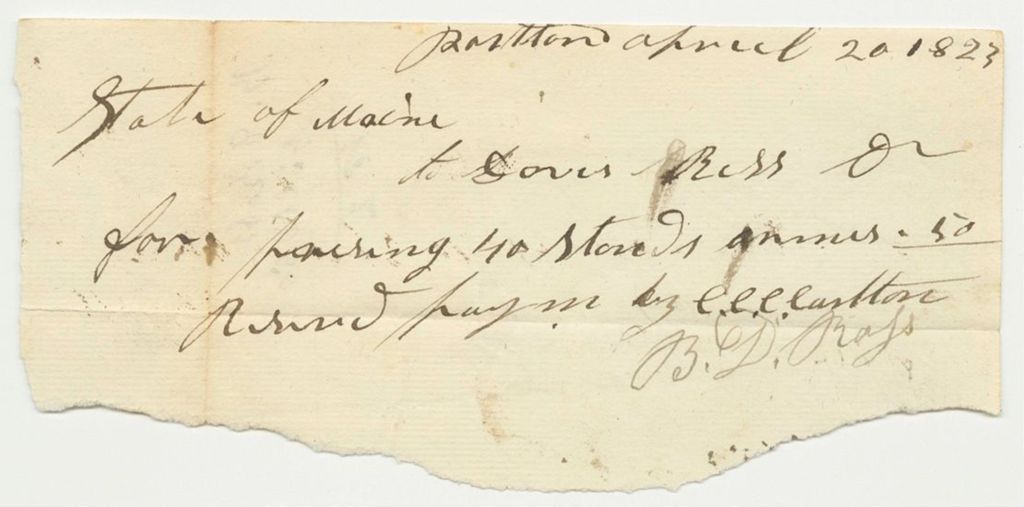 Portland April 20 1823
State of Maine
to Dovis Ross Dr
for 40 Stands armes . 50
Resevd paym by C.C.C. Carlton
B. D. Ross